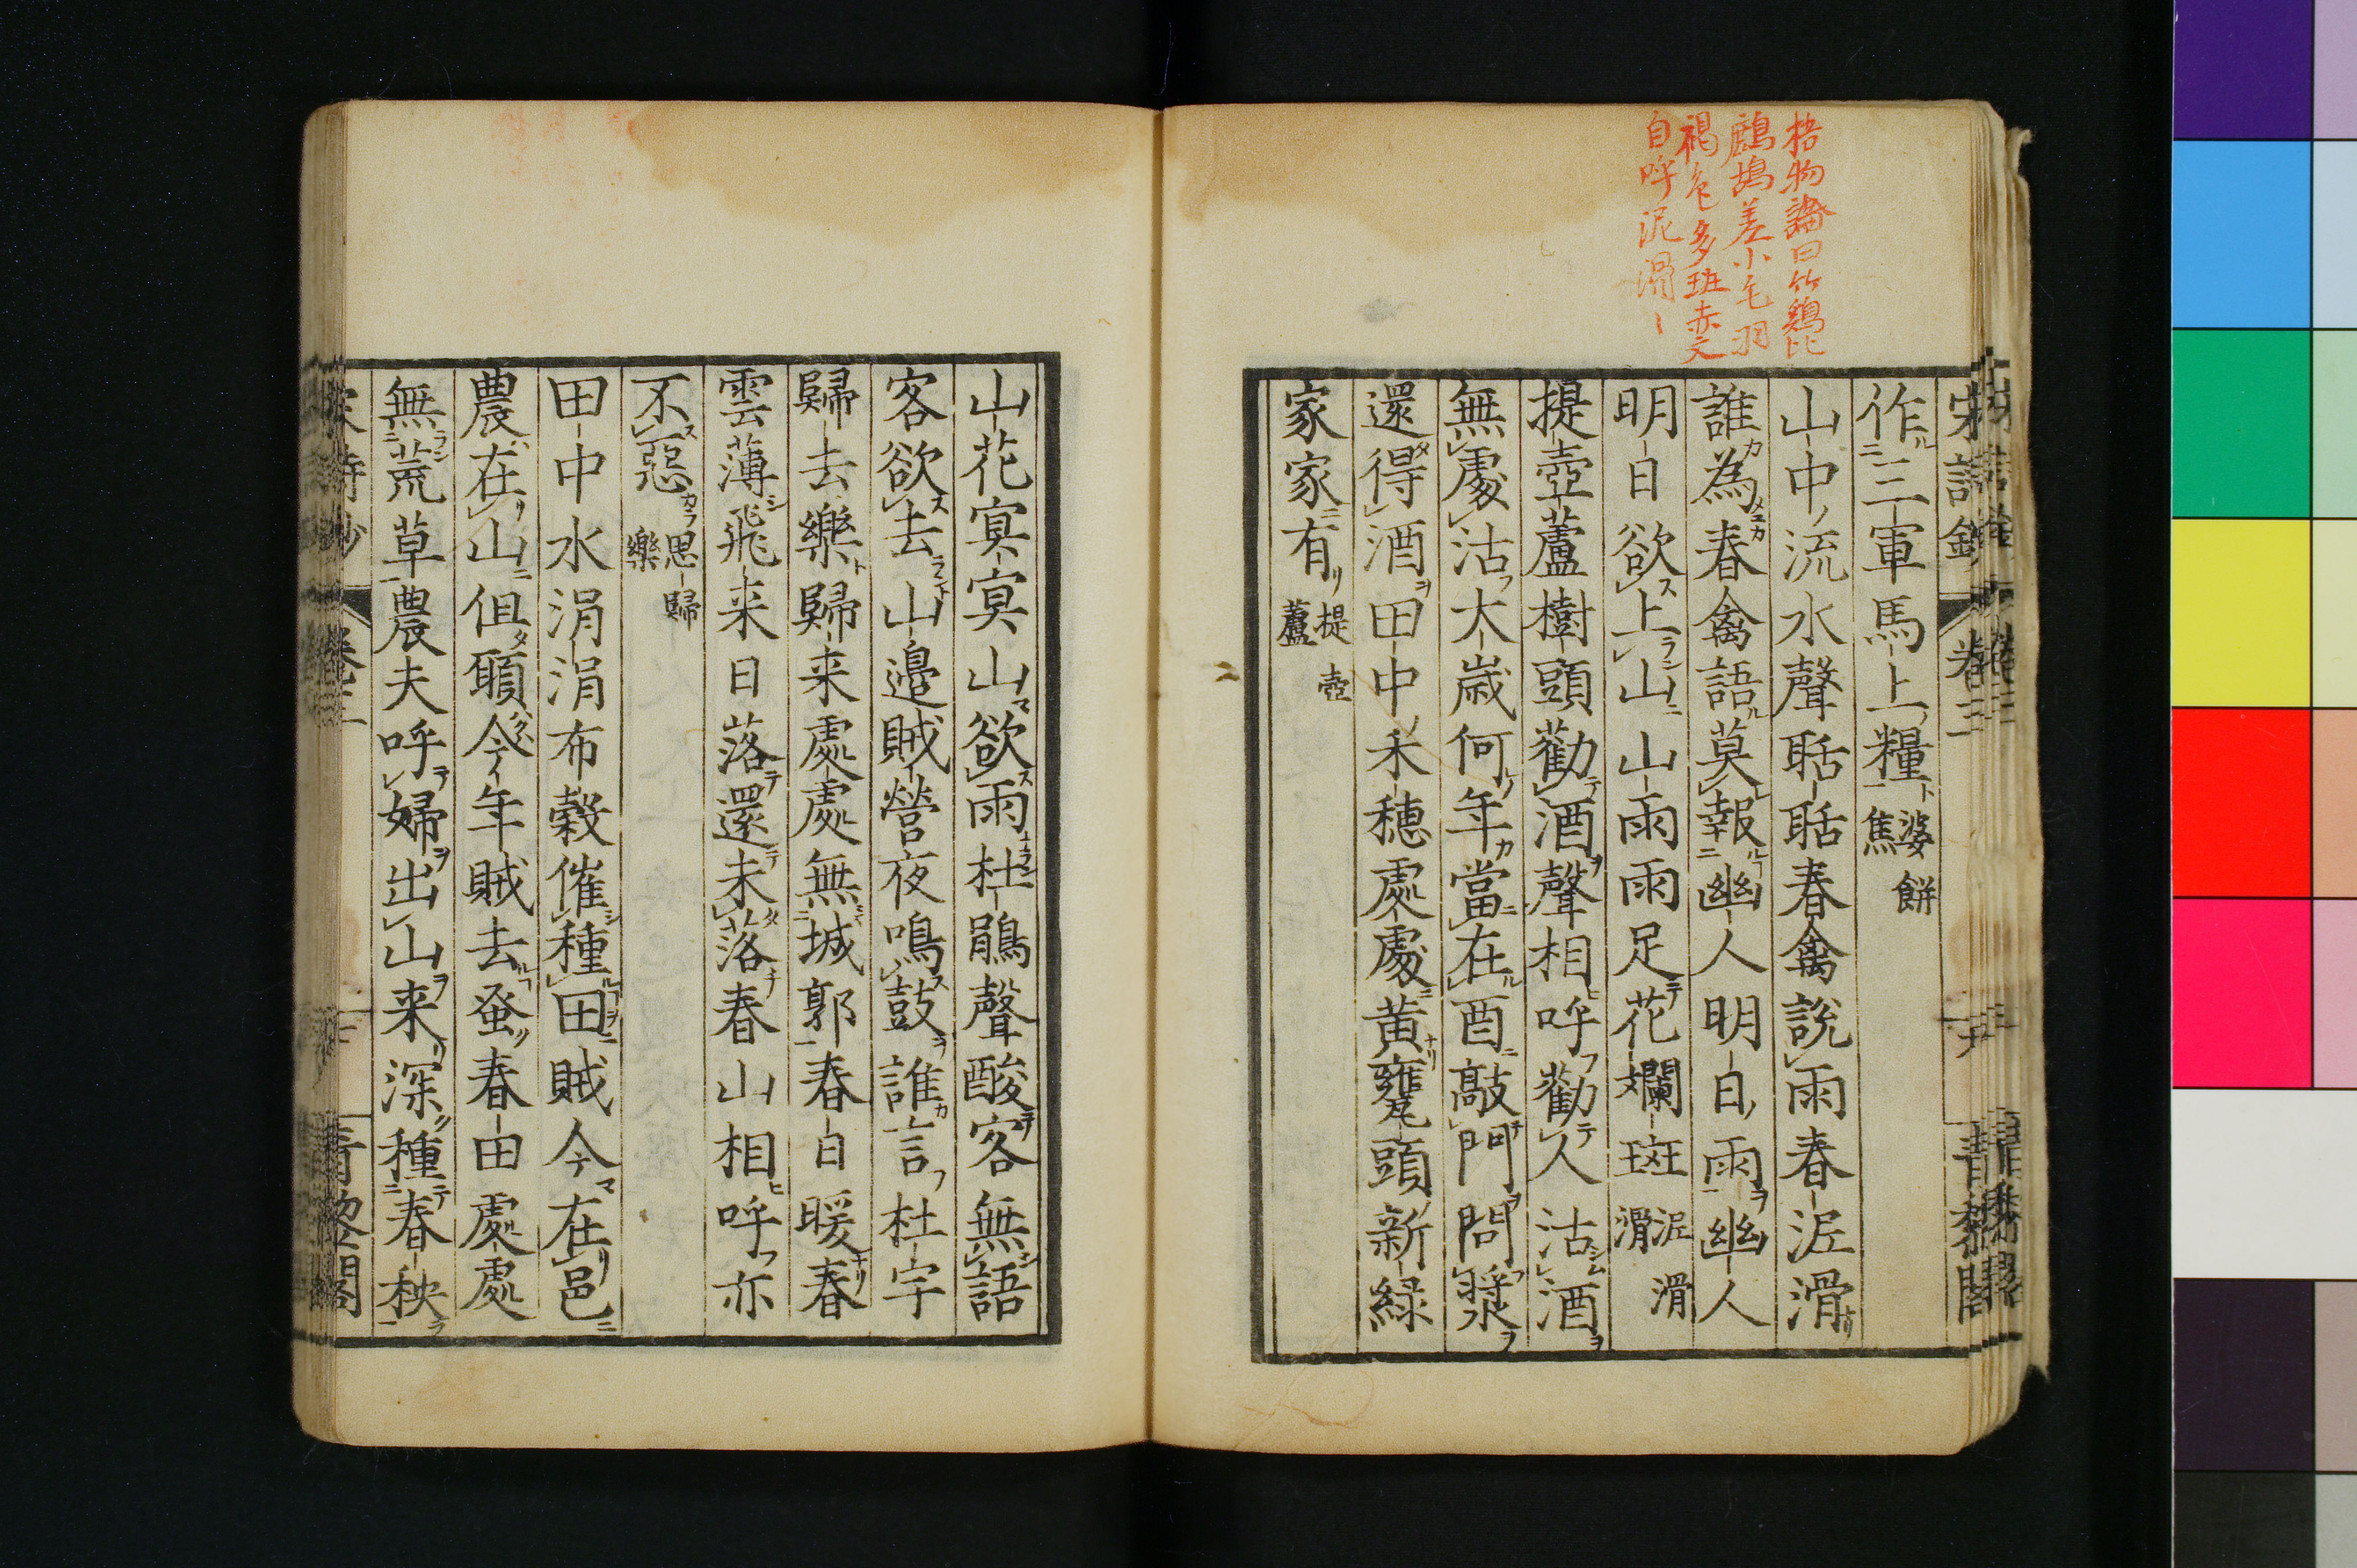 格物論曰竹鷄比
鷓鴣差小毛羽
褐色多斑赤文
自呼泥滑〻
作三軍馬上糧婆餅焦
山中流水聲聒聒春禽說雨春泥滑
誰為春禽語莫報幽人明日雨幽人
明日欲上山山雨雨足花斕斑泥滑滑
提壺蘆樹頭勸酒聲相呼勸人沽酒
無處沽大歲何年當在酉敲門問漿
還得酒田中禾穗處處黃甕頭新緑
家家有提壺蘆
山花㝠㝠山欲雨杜鵑聲酸客無語
客欲去山邊賊營夜鳴鼓誰言杜宇
歸去樂歸来處處無城郭春日暖春
雲薄飛来日落還未落春山相呼亦
不惡思歸樂
田中水涓涓布穀催種田賊今在邑
農在山但願今年賊去蚤春田處處
無荒草農夫呼婦出山来深種春秧